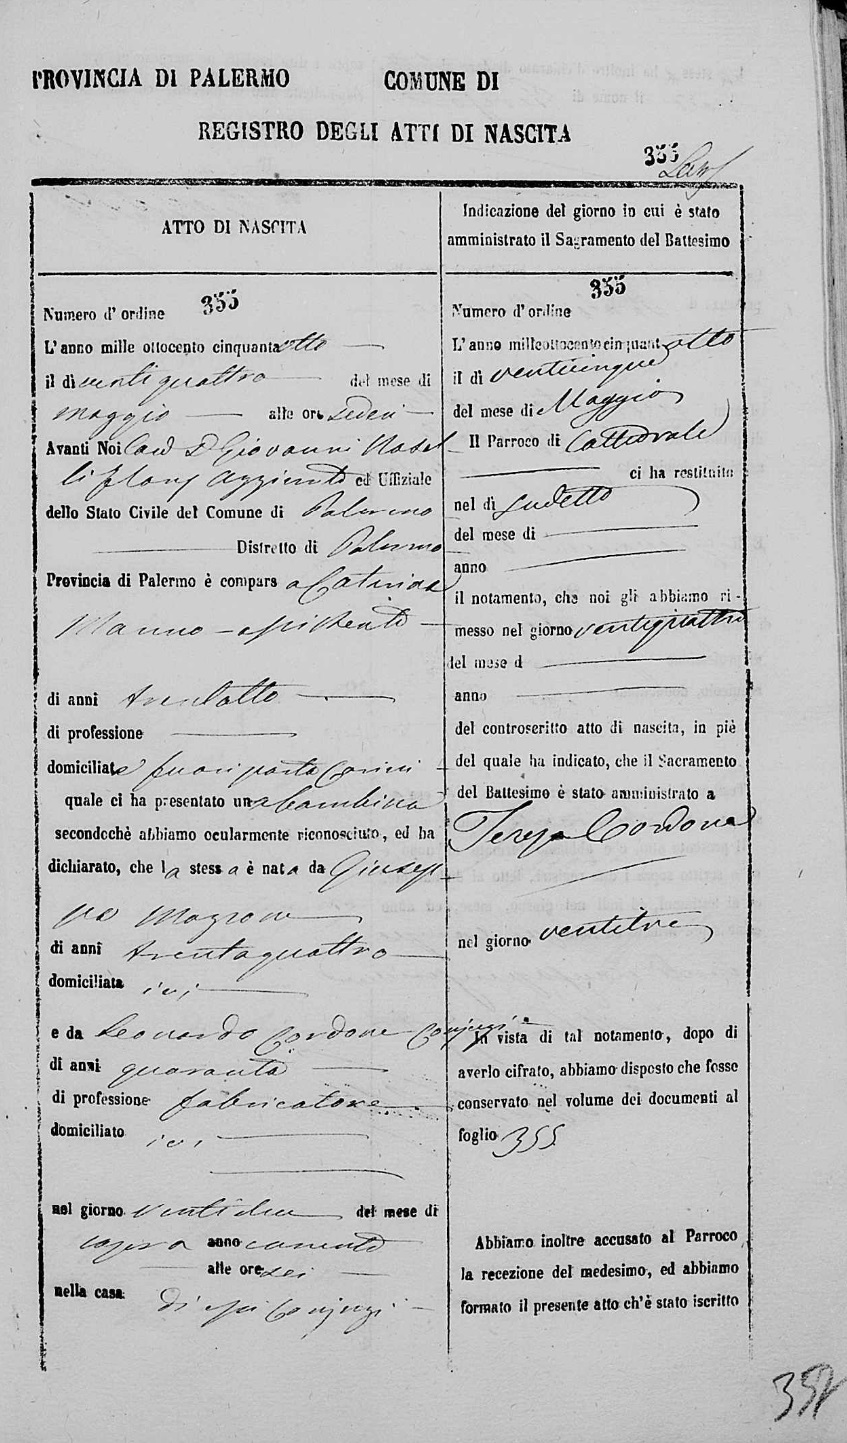 PROVINCIA DI PALERMO COMUNE DI
REGISTRO DEGLI ATTI DI NASCITA
355
ATTO DI NASCITA
Numero d' ordine 355
L' anno mille ottocento cinquantaotto
il dì ventiquattro del mese di
maggio alle ore sedeci
Avanti Noi Cav D Giovanni Nasel
li Flores Aggiunto ed Uffiziale
dello Stato Civile del Comune di Palermo
Distretto di Palermo
Provincia di Palermo è comparsa Caterina
Manno assistente
di anni trentotto
di professione
domiciliata fuori porta Carini
quale ci ha presentato una bambina
secondochè abbiamo ocularmente riconosciuto, ed ha
dichiarato, che la stessa è nata da Giusep
pa
di anni trentaquattro
domiciliata ivi
e da Leonardo Cordone Conjugi
di anni quaranta
di professione fabricatore
domiciliato ivi
nel giorno ventidue del mese di
anno corrente
alle ore sei
nella casa
di essi Conjugi
Indicazione del giorno in cui è stato
amministrato il Sagramento del Battesimo
355
Numero d' ordine
L' anno milleottocentocinquantotto
il dì venticinque
del mese di Maggio
Il Parroco di Cattedrale
ci ha restituito
nel dì sudetto
del mese di
anno
il notamento, che noi gli abbiamo ri-
messo nel giorno ventiquattro
del mese d
anno
del controscritto atto di nascita, in piè
del quale ha indicato, che il Sacramento
del Battesimo è stato amministrato a
Teresa Cordone
nel giorno ventitre
In vista di tal notamento, dopo di
averlo cifrato, abbiamo disposto che fosse
conservato nel volume dei documenti al
foglio 355
Abbiamo inoltre accusato al Parroco
la recezione del medesimo, ed abbiamo
formato il presente atto ch'è stato iscritto